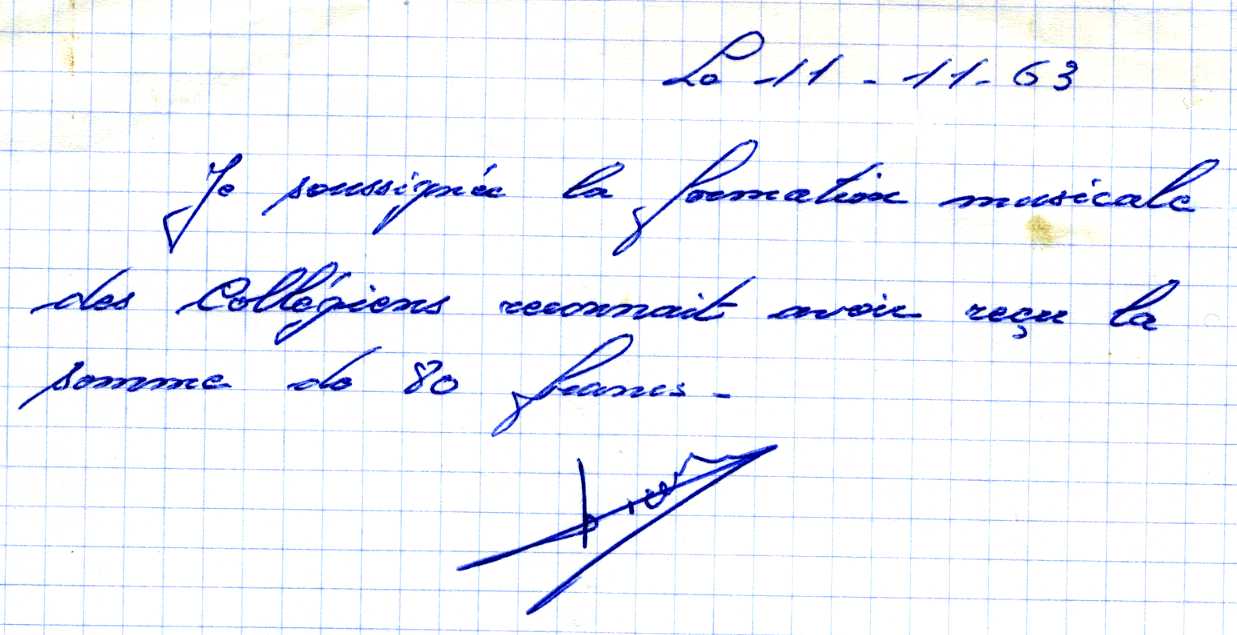 Le 11 - 11 - 63
Je soussignée la formation musicale
des Collégiens reconnait avoir reçu la
somme de 80 francs -